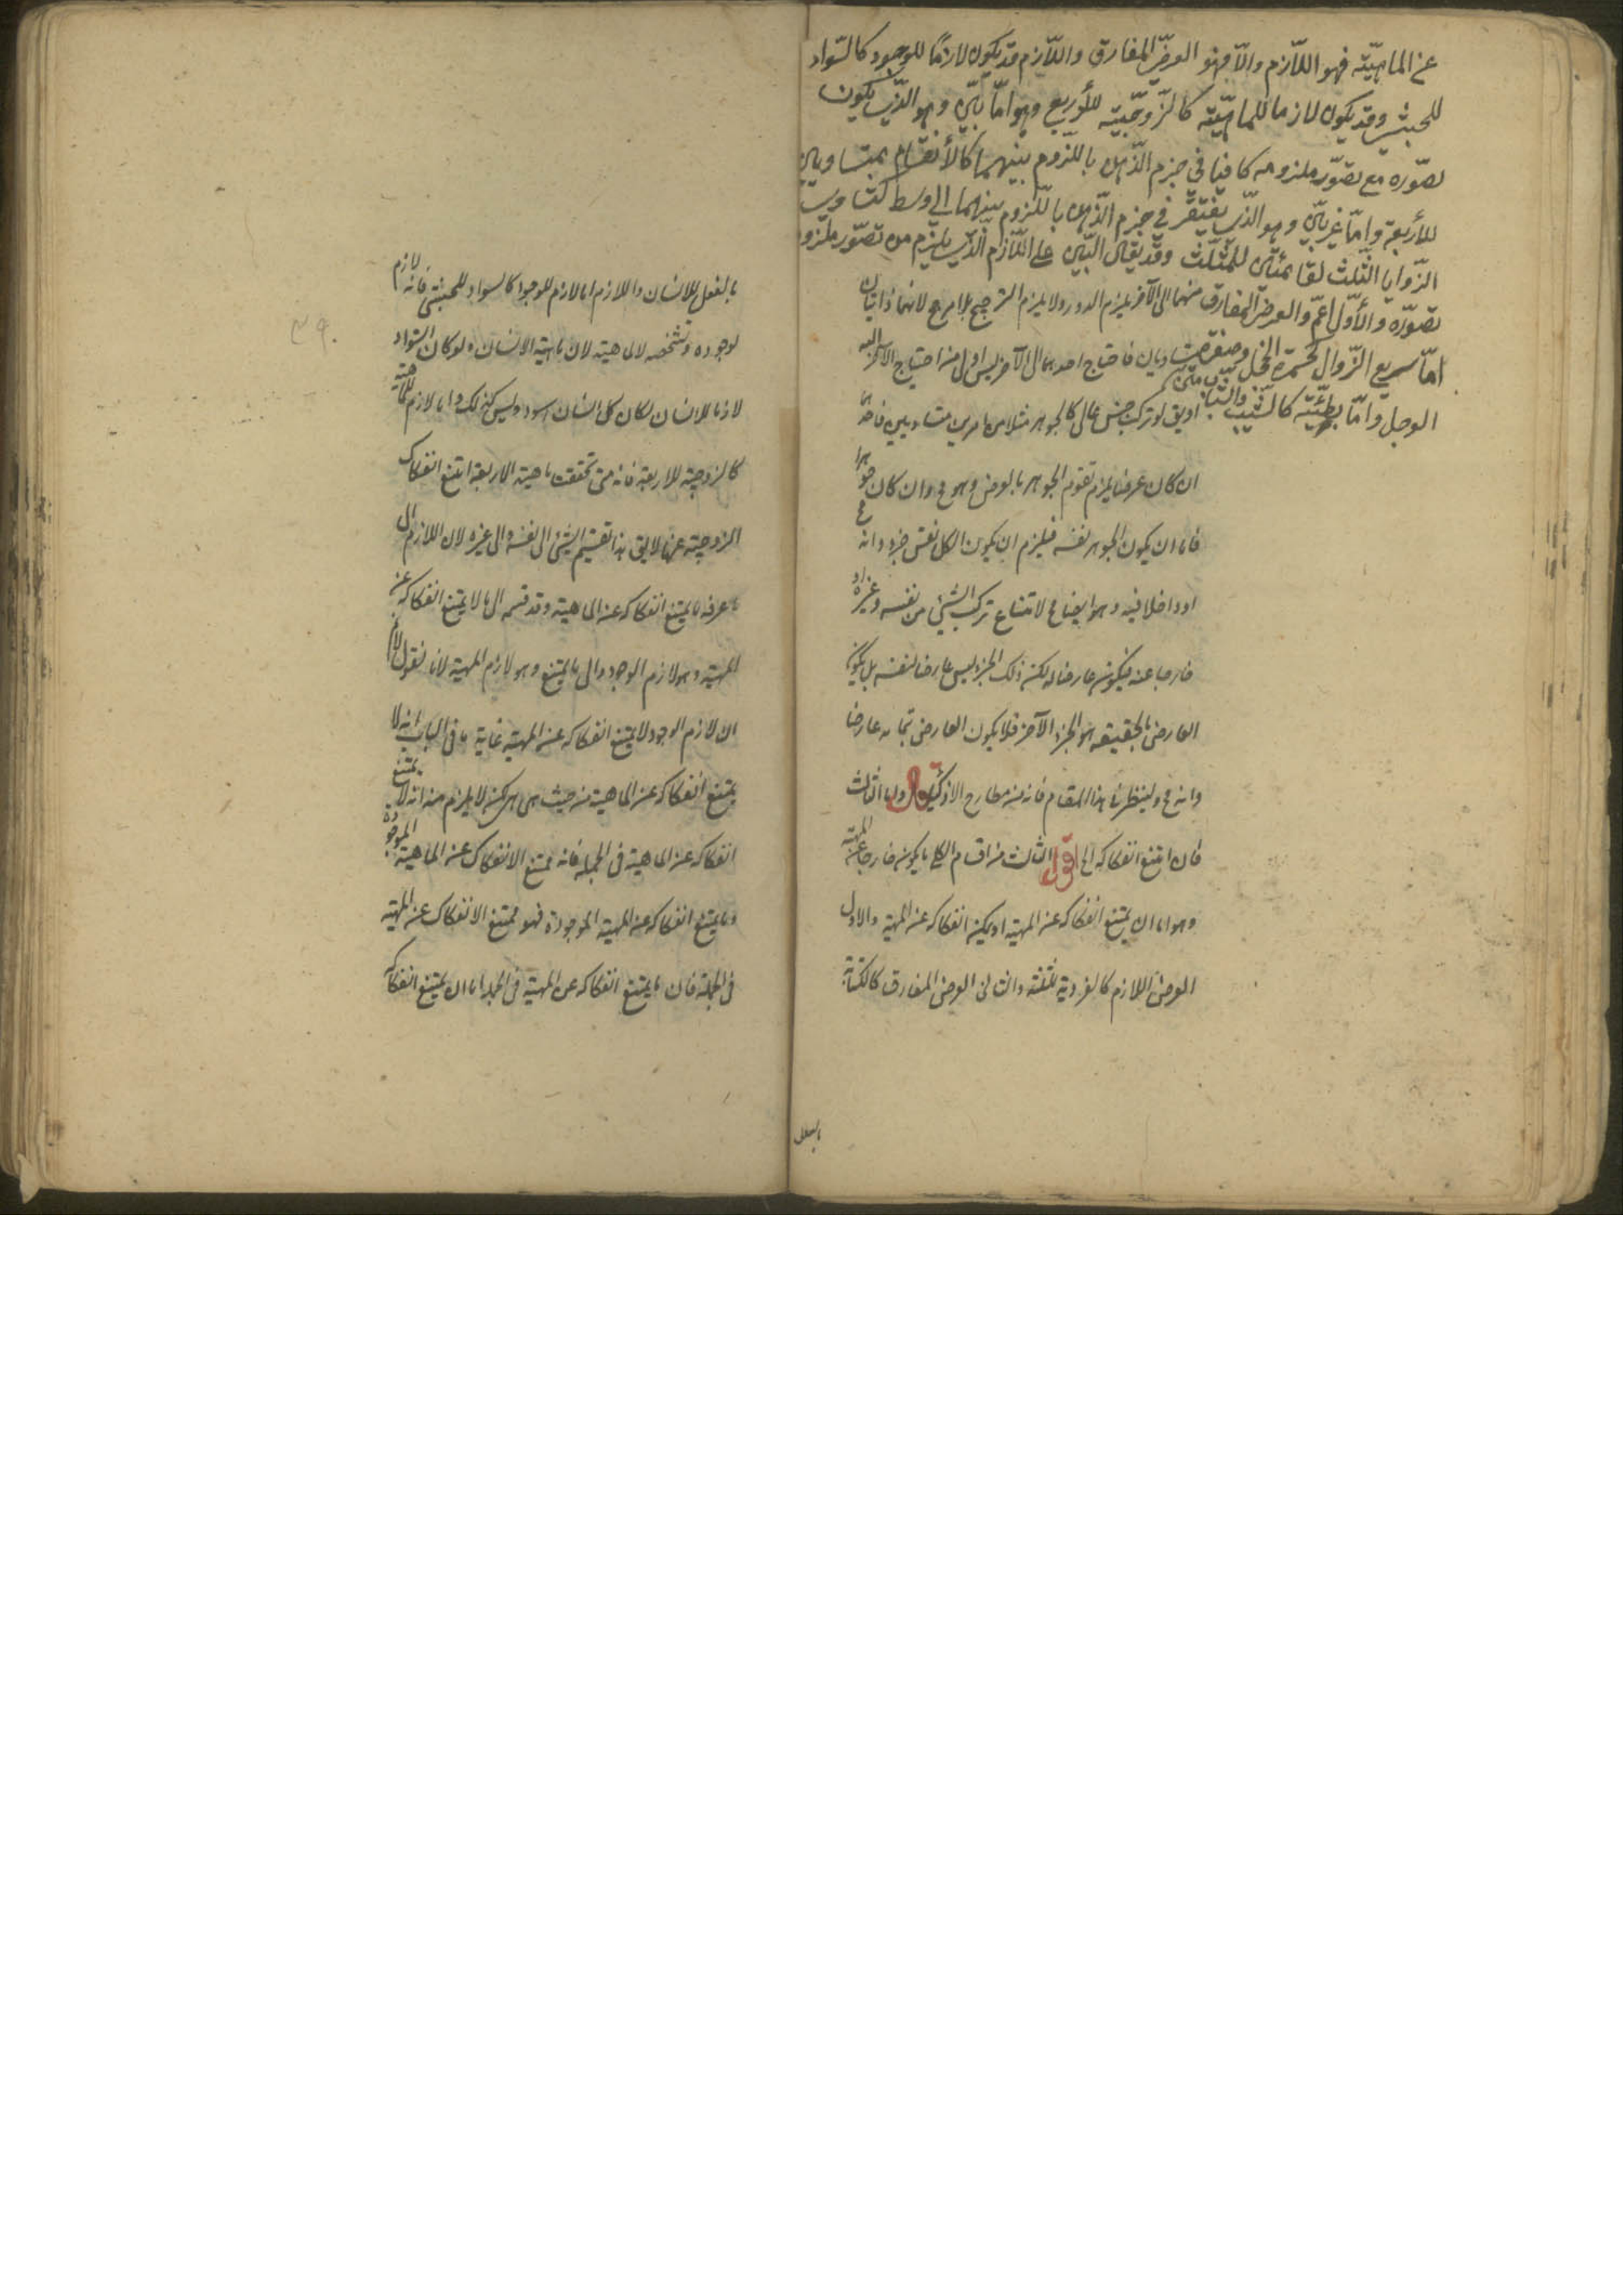 عن الماهيّة فهو اللّازم والّا فهو العرض المفارق واللّازم قد يكون لازمًا للوجود كالسّواد
للحبشي وقد يكون لازما للماهيّة كالزّوجيّة للأربع وهو امّا بيّن وهو الّذي يكون
تصوّره مع تصوّر ملزومه كافيا في جزم الذّهن باللّزوم بينهما كالأنقسام بمتساويين
للأربعة وامّا غير بيّن وهو الّذي يفتقر في جزم الذّهن باللّزوم بينهما الى وسط كتساوي
الزّوايا الثّلث لقائمتين للمثلّث وقد يقال البيّن على اللّازم الّذي يلزم من تصوّر ملزومه
تصوّره والأوّل اعمّ والعرض المفارق
امّا سريع الزّوال كحمرة الخجل وصفرة
الوجل وامّا بطيئه كالشّيب والشّباب
منهما الى الآخر يلزم الدور ولا يلزم الترجيح بلا مرجح لانهما ذاتيان
متساويان فاحتياج احدهما الى الآخر ليس اولى من احتياج الآخر اليه
او يق لو تركب جنس عالى كالجوهر مثلا من امرين متساويين فاحدهما
ان كان عرضا يلزم تقوم الجوهر بالعرض وهو مح وان كان جوهرا
فاما ان يكون الجوهر نفسه فيلزم ان يكون الكل نفس جزءه وانه مح
او داخلا فيه وهو ايضا مح لامتناع تركب الشيئ من نفسه وغيره او
خارجا عنه فيكون عارضا له لكن ذلك الجزء ليس عارضا لنفسه بل يكون
العارض بالحقيقه هو الجزء الآخر فلا يكون العارض بتمامه عارضا
وانه مح ولينظر في هذا المقام فانه من مطارح الاذكيا قال واما الثالث
فان امتنع انفكاكه الخ اقول الثالث من اقسام الكلى ما يكون خارجا عن المهية
وهو اما ان يمتنع انفكاكه عن المهية او يمكن انفكاكه عن المهية والاول
العرض اللازم كالفردية للثلثة والثانى العرض المفارق كالكتابة
بالفعل
بالفعل للانسان واللازم اما لازم للوجود كالسواد للحبشى فانه لازم
لوجوده وتشخصه لا لماهيته لان ماهية الانسان ولو كان السواد
لازما للانسان لكان كل انسان اسود وليس كذلك واما لازم للماهية
كالزوجية للاربعة فانه متى تحققت ماهية الاربعة امتنع انفكاك
الزوجية عنها لا يق هذا تقسيم الشئ الى نفسه والى غيره لان اللازم الى
ما عرفه ما يمتنع انفكاكه عن الماهية وقد قسمه الى ما لا يمتنع انفكاكه عن
المهية وهو لازم الوجود والى ما يمتنع وهو لازم المهية لانا نقول لانم
ان لازم الوجود لا يمتنع انفكاكه عن المهية غاية ما فى الباب انه لا
يمتنع انفكاكه عن الماهية من حيث هى هى لكن لا يلزم منه انه لا يمتنع
انفكاكه عن الماهية فى الجملة فانه ممتنع الانفكاك عن الماهية الموجودة
وما يمتنع انفكاكه عن المهية الموجودة فهو ممتنع الانفكاك عن المهية
فى الجملة فان ما يمتنع انفكاكه عن المهية فى الجملة اما ان يمتنع انفكاكه